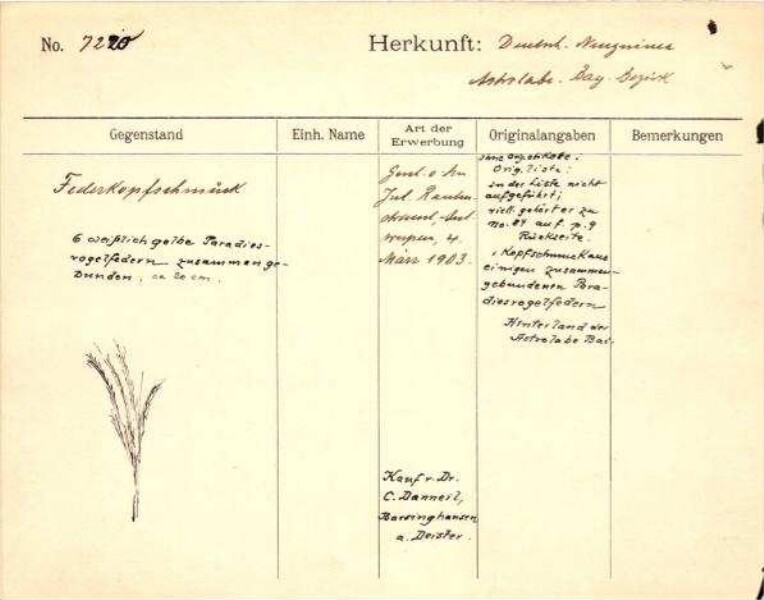 No. 7220
Herkunft: Deutsch. Neuguinea
Astrolabe. Bay. Bezirk
Gegenstand
Einh. Name
Art der
Erwerbung
Originalangaben
Bemerkungen
Federkopfschmuck
6 weißlich gelbe Paradies-
vogelfedern zusammenge-
bunden, ca 20 cm.
Jul.
4.
März 1903.
Kauf v. Dr.
C. Danneil,
Barsinghausen
a. Deister.
ohne
Orig. liste:
in der Liste nicht
aufgeführt;
viell. gehört er zu
No. 84 auf p. 9
Rückseite.
Kopfschmuck aus
einigen zusammen-
gebundenen Para-
diesvogelfedern
Hinterland der
Astrolabe Bai.